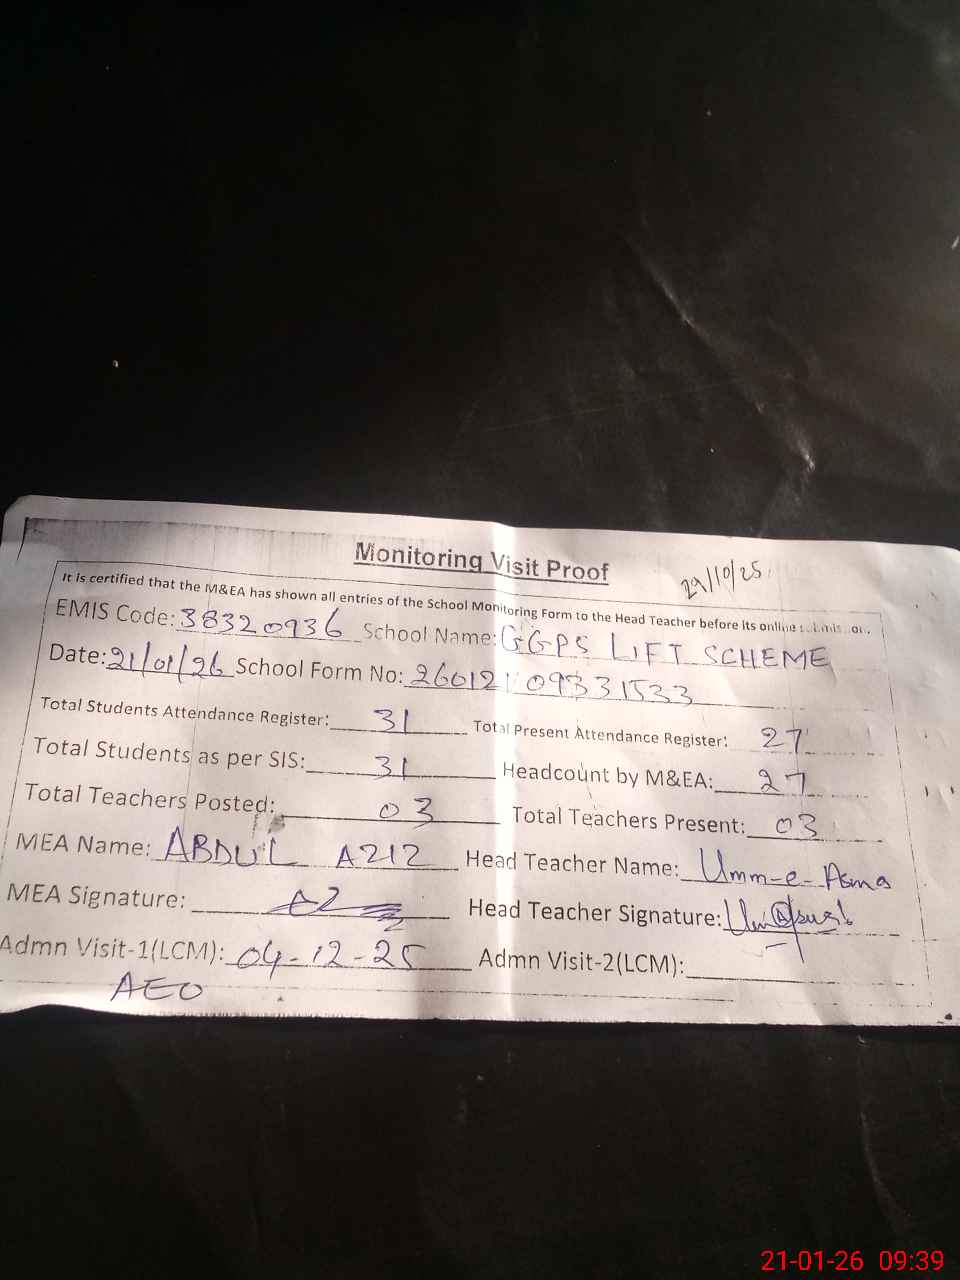 Monitoring Visit Proof
29/10/25
It is certified that the M&EA has shown all entries of the School Monitoring Form to the Head Teacher before its online submission.
EMIS Code: 38320936 School Name: GGPS LIFT SCHEME
Date: 21/01/26 School Form No: 26012109331533
Total Students Attendance Register: 31 Total Present Attendance Register: 27
Total Students as per SIS: 31 Headcount by M&EA: 27
Total Teachers Posted: 03 Total Teachers Present: 03
MEA Name: ABDUL AZIZ Head Teacher Name: Umm-e-Asma
MEA Signature: Head Teacher Signature:
Admn Visit-1(LCM): 04-12-25 Admn Visit-2(LCM):
AEO
21-01-26 09:39